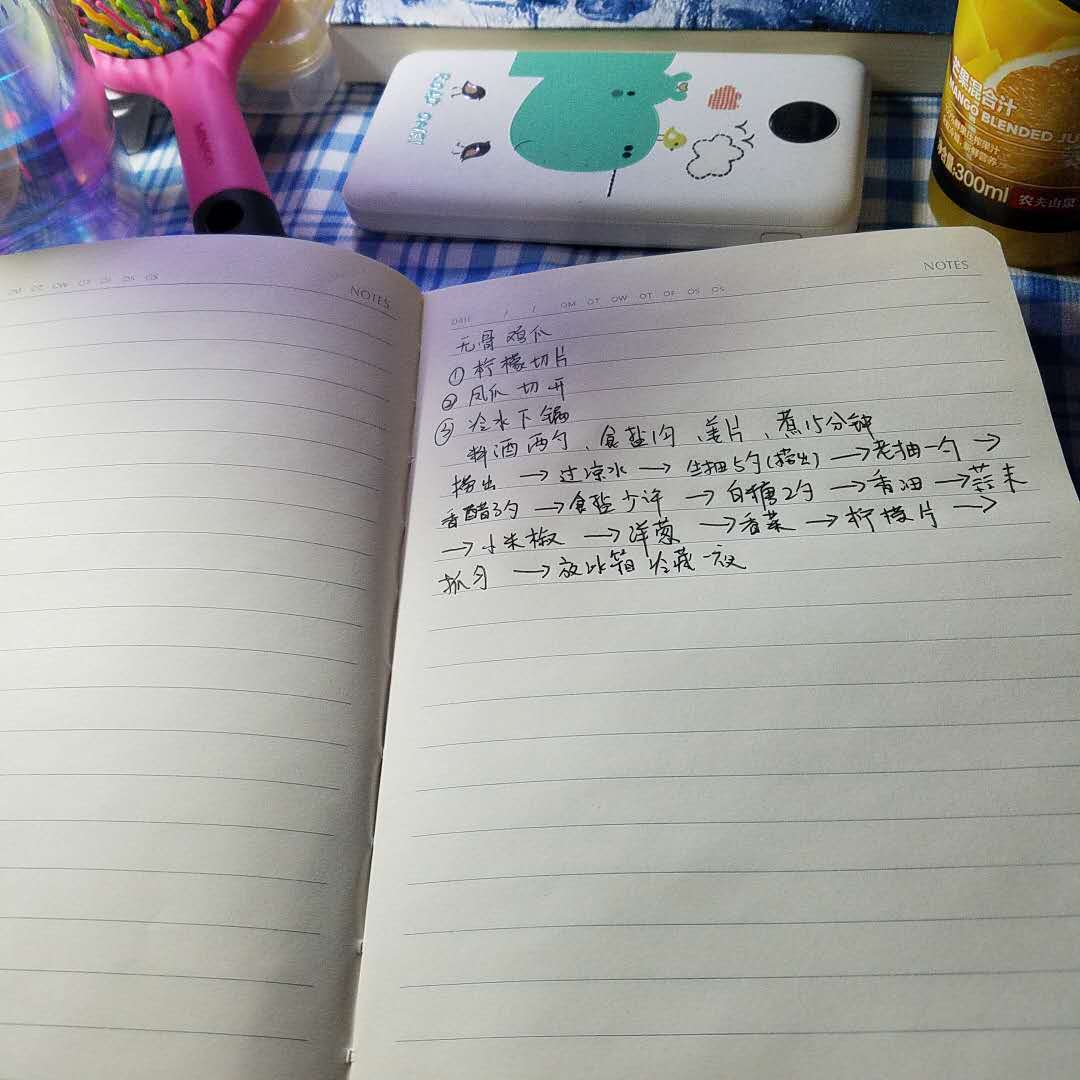 POWER ONER
芒果混合汁
MANGO BLENDED JU
300ml
农夫山泉
NOTES
NOTES
DATE / / OM OT OW OT OF OS OS
无骨鸡爪
①柠檬切片
②凤爪切开
③冷水下锅
料酒两勺、食盐1勺、姜片、煮15分钟
捞出→过凉水→生抽5勺(捞出)→老抽一勺→
香醋3勺→食盐少许→白糖2勺→香油→蒜末
→小米椒→洋葱→香菜→柠檬片→
抓匀→放冰箱冷藏一夜